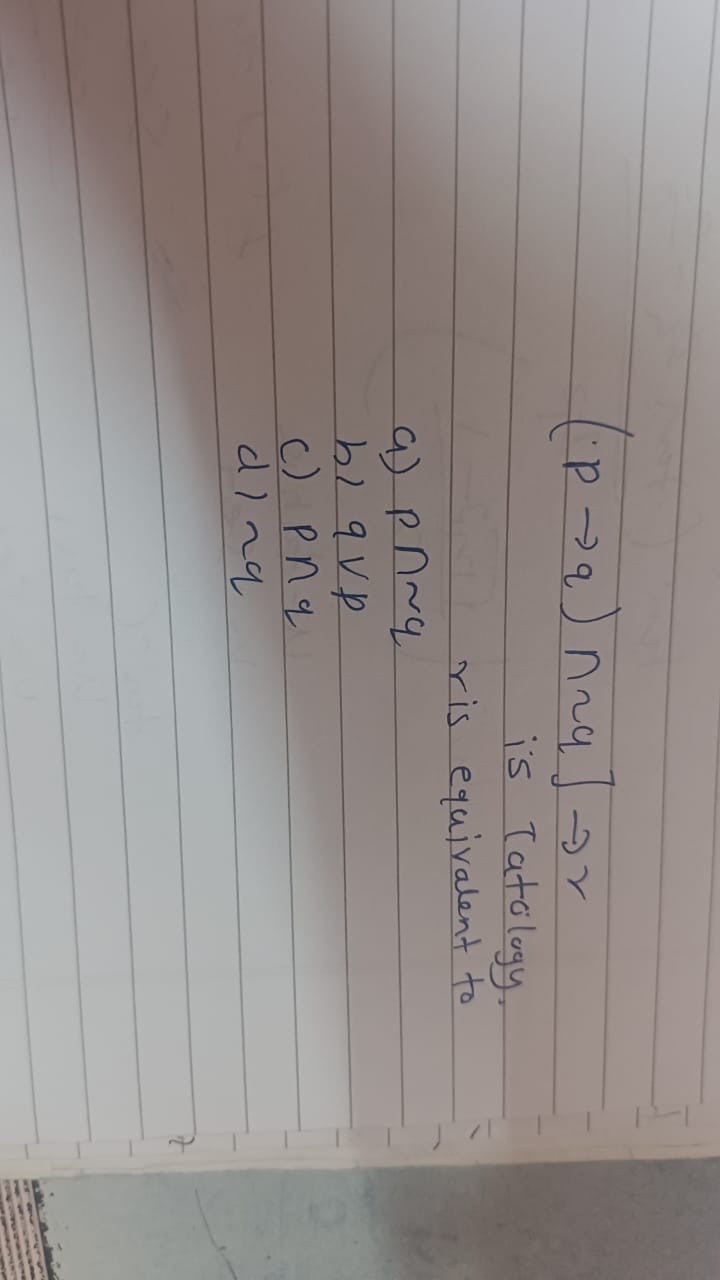 (p → q) ∩ ~q] → r
is Tatology.
r is equivalent to
a) p ∩ ~q
b) q ∨ p
c) p ∩ q
d) ~q